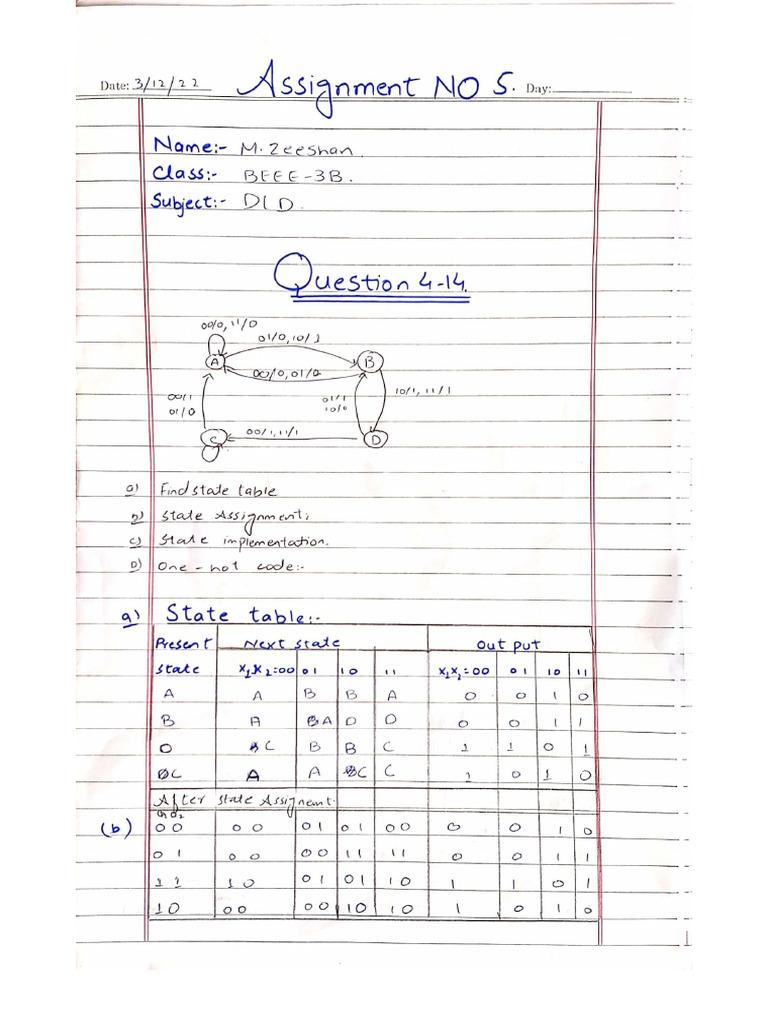 Date: 3/12/22 Assignment NO 5. Day:
Name:- M. Zeeshan.
Class:- BEEE-3B.
Subject:- DLD.
Question 4-14.
00/0, 11/0
01/0, 10/1
A
B
00/0, 01/0
00/1
01/0
01/1
10/0
10/1, 11/1
C
00/1, 11/1
D
a) Find state table
b) State Assignment;
c) State implementation.
D) One - hot code:-
a) State table:-
Present Next state Out put
state X₁X₂=00 01 10 11 X₁X₂=00 01 10 11
A A B B A 0 0 1 0
B A A D D 0 0 1 1
D C B B C 1 1 0 1
C A A C C 1 0 1 0
After state Assignment.
(b) 00 00 01 01 00 0 0 1 0
01 00 00 11 11 0 0 1 1
11 10 01 01 10 1 1 0 1
10 00 00 10 10 1 0 1 0